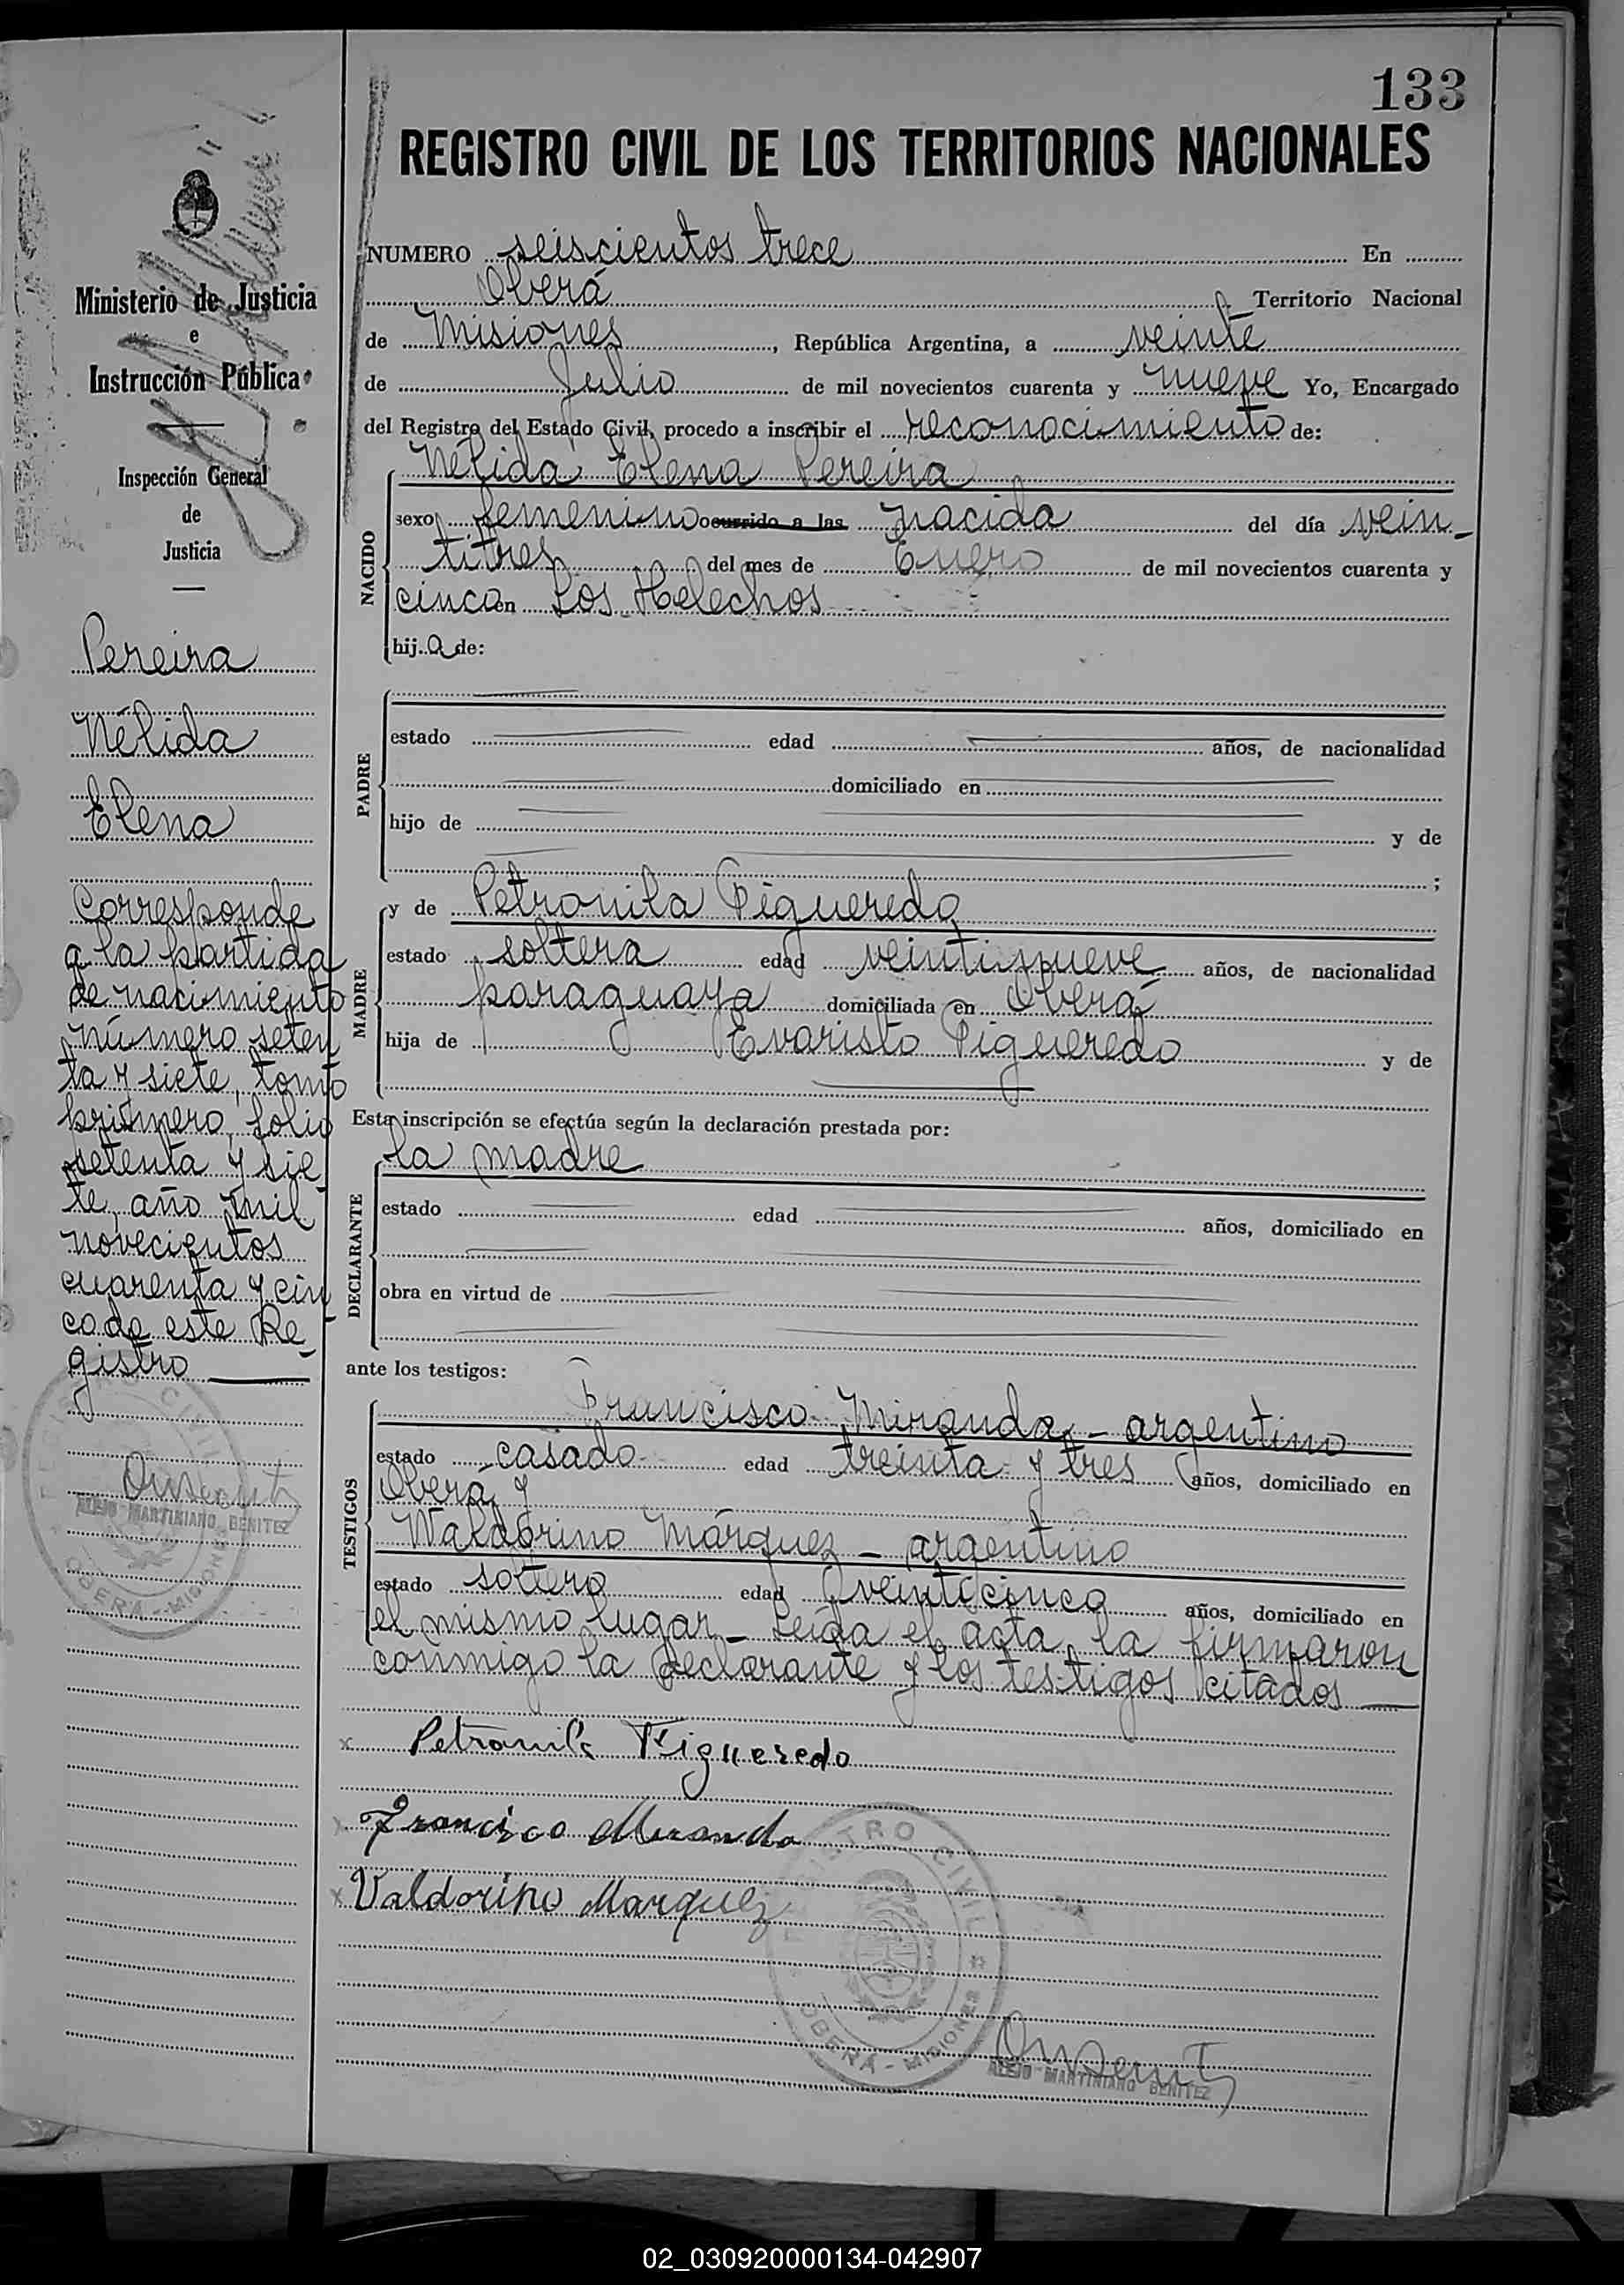 133
REGISTRO CIVIL DE LOS TERRITORIOS NACIONALES
NUMERO seiscientos trece En
Oberá Territorio Nacional
de Misiones, República Argentina, a veinte
de Julio de mil novecientos cuarenta y nueve Yo, Encargado
del Registro del Estado Civil, procedo a inscribir el reconocimiento de:
Nélida Elena Pereira
NACIDO
sexo femenino ocurrido a las nacida del día vein-
titres del mes de Enero de mil novecientos cuarenta y
cinco en Los Helechos
hija de:
PADRE
estado edad años, de nacionalidad
domiciliado en
hijo de y de
;
MADRE
y de Petronila Figueredo
estado soltera edad veintinueve años, de nacionalidad
paraguaya domiciliada en Oberá
hija de Evaristo Figueredo y de
Esta inscripción se efectúa según la declaración prestada por:
DECLARANTE
la madre
estado edad años, domiciliado en
obra en virtud de
ante los testigos:
TESTIGOS
Francisco Miranda - argentino
estado casado edad treinta y tres años, domiciliado en
Oberá y
Waldorino Márquez - argentino
estado soltero edad veinticinco años, domiciliado en
el mismo lugar - Leída el acta, la firmaron
conmigo la declarante y los testigos citados
x Petronila Figueredo
x Francisco Miranda
x Valdorino Marquez
REGISTRO CIVIL
OBERÁ - MISIONES
ALEJO MARTINIANO BENITEZ
Ministerio de Justicia
e
Instrucción Pública
Inspección General
de
Justicia
Pereira
Nélida
Elena
Corresponde
a la partida
de nacimiento
número seten
ta y siete, tomo
primero, folio
setenta y sie-
te, año mil
novecientos
cuarenta y cin-
co de este Re-
gistro
REGISTRO CIVIL
OBERÁ - MISIONES
ALEJO MARTINIANO BENITEZ
02_030920000134-042907